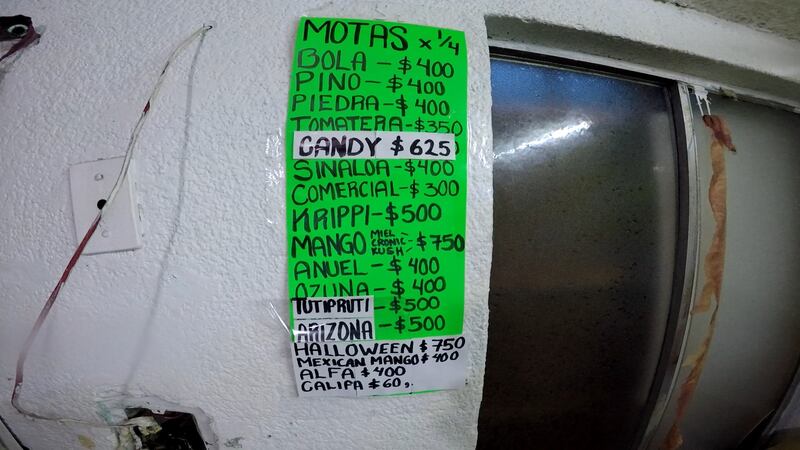 MOTAS x 1/4
BOLA - $ 400
PINO - $ 400
PIEDRA - $ 400
TOMATERA - $350
CANDY $ 625
SINALOA - $400
COMERCIAL - $ 300
KRIPPI - $500
MANGO MIEL CRONIC KUSH - $ 750
ANUEL - $ 400
OZUNA - $ 400
TUTIPRUTI - $500
ARIZONA - $500
HALLOWEEN $ 750
MEXICAN MANGO $ 400
ALFA $ 400
CALIPA